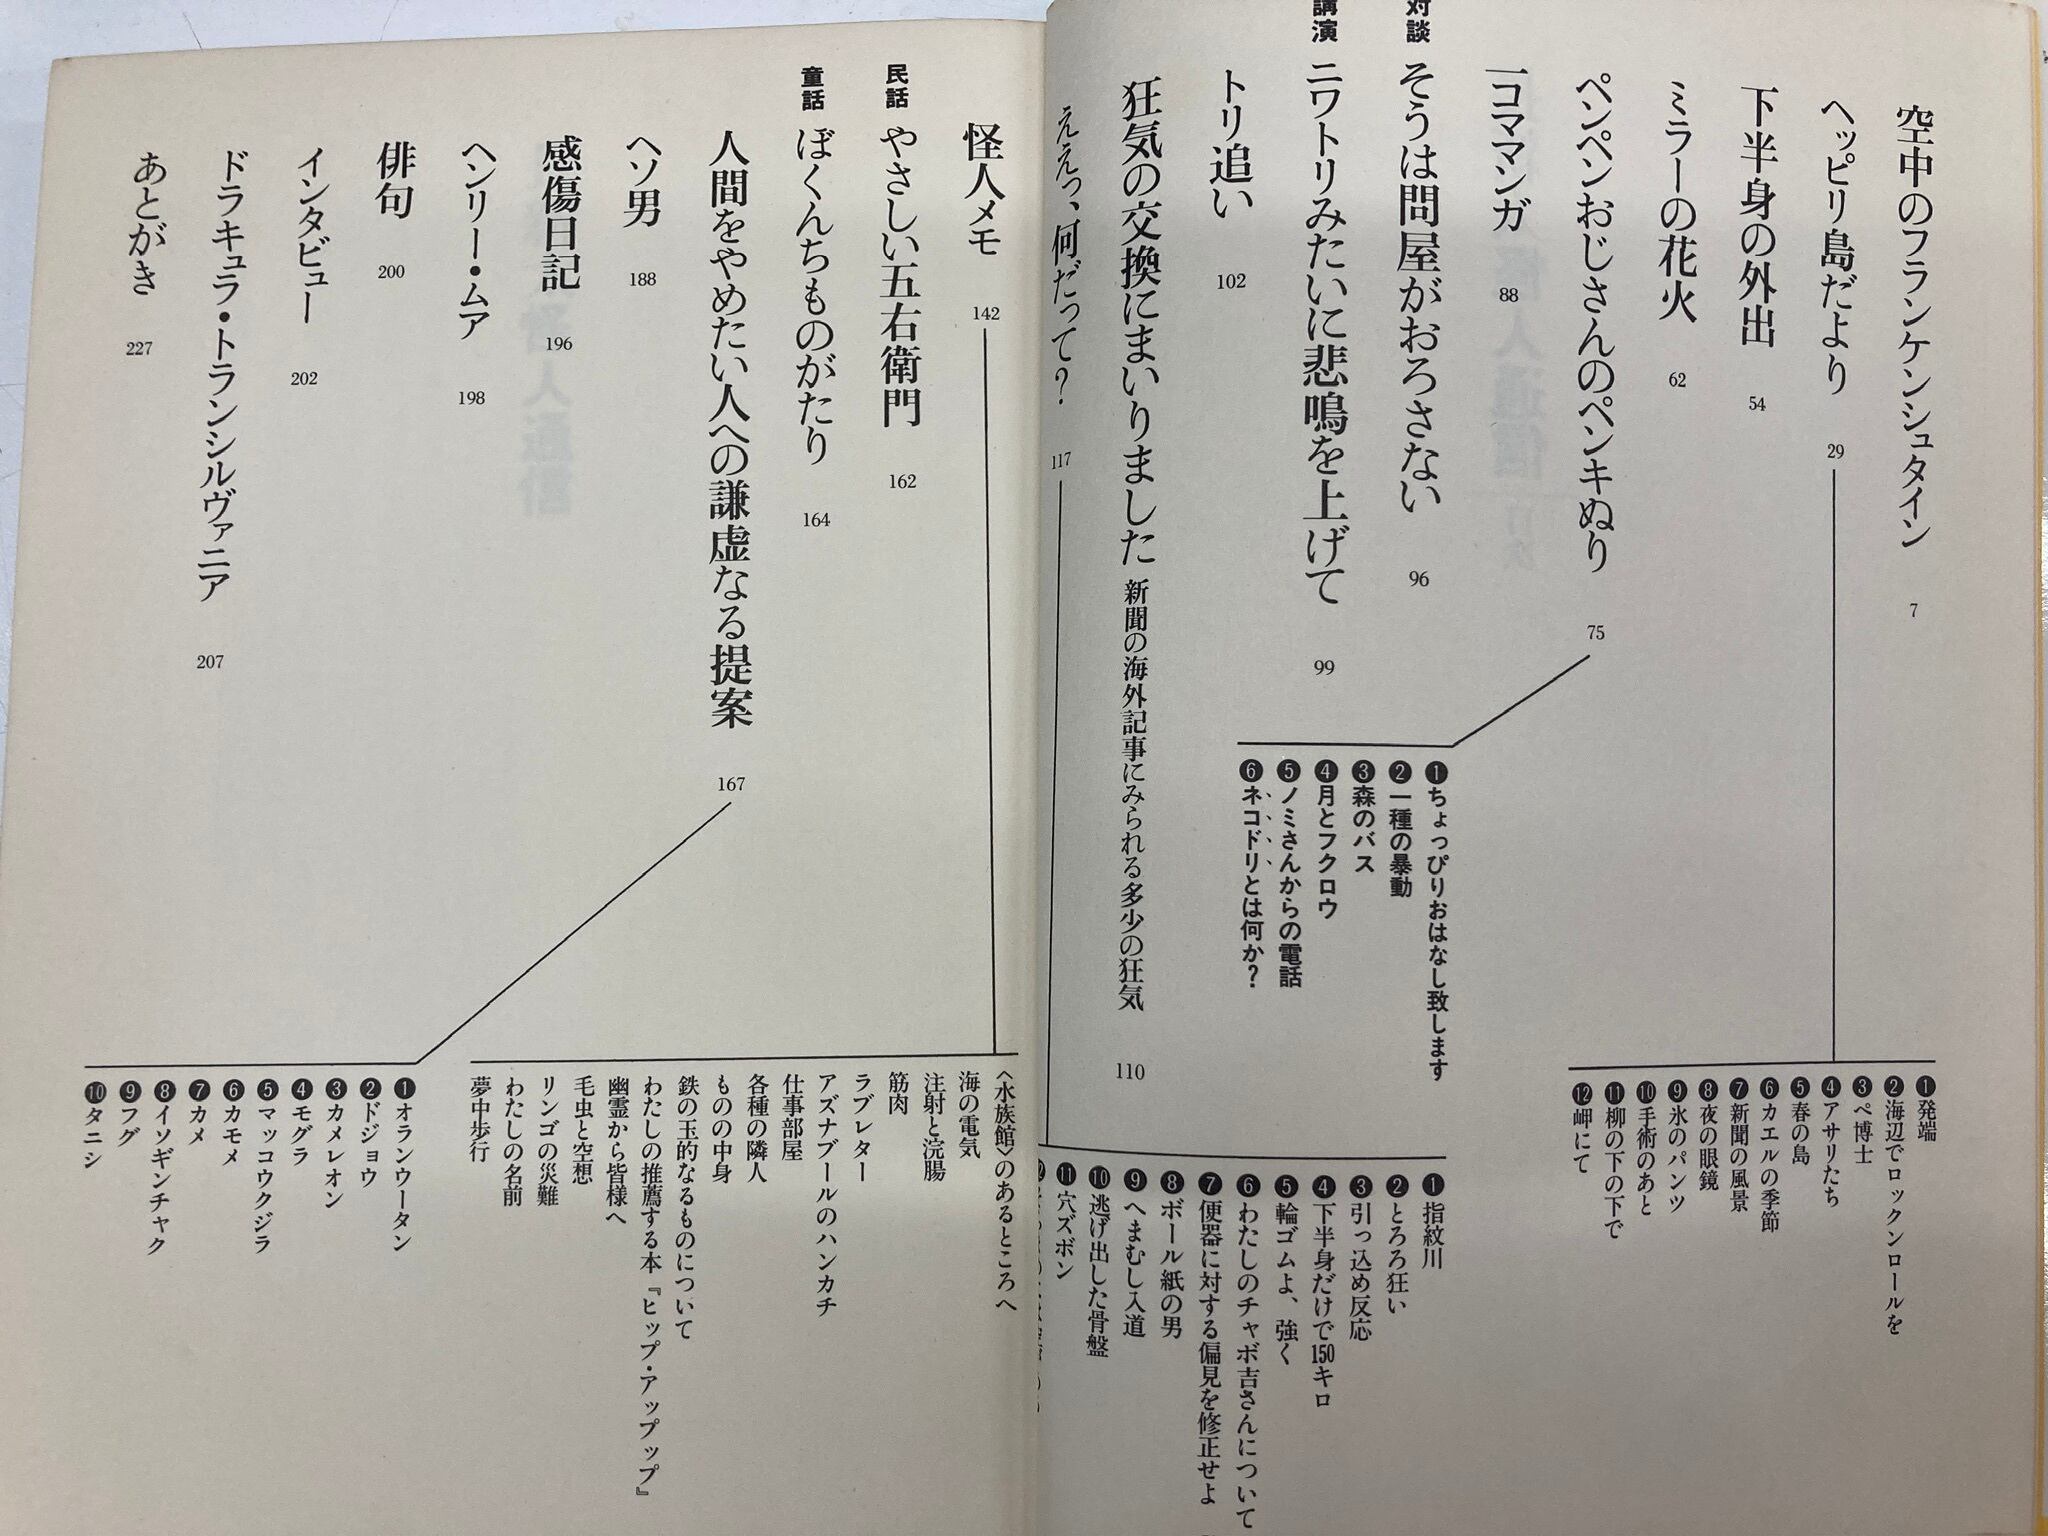 空中のフランケンシュタイン 7
ヘッピリ島だより 29
❶発端
❷海辺でロックンロールを
❸ペ博士
❹アサリたち
❺春の島
❻カエルの季節
❼新聞の風景
❽夜の眼鏡
❾氷のパンツ
❿手術のあと
⓫柳の下の下で
⓬岬にて
下半身の外出 54
ミラーの花火 62
ペンペンおじさんのペンキぬり 75
❶ちょっぴりおはなし致します
❷一種の暴動
❸森のバス
❹月とフクロウ
❺ノミさんからの電話
❻ネコドリとは何か?
一コママンガ 88
対談 そうは問屋がおろさない 96
講演 ニワトリみたいに悲鳴を上げて 99
トリ追い 102
狂気の交換にまいりました 新聞の海外記事にみられる多少の狂気 110
ええっ、何だって? 117
❶指紋川
❷とろろ狂い
❸引っ込め反応
❹下半身だけで150キロ
❺輪ゴムよ、強く
❻わたしのチャボ吉さんについて
❼便器に対する偏見を修正せよ
❽ボール紙の男
❾へまむし入道
❿逃げ出した骨盤
⓫穴ズボン
怪人メモ 142
〈水族館〉のあるところへ
海の電気
注射と浣腸
筋肉
ラブレター
アズナブールのハンカチ
仕事部屋
各種の隣人
ものの中身
鉄の玉的なるものについて
わたしの推薦する本『ヒップ・アップップ』
幽霊から皆様へ
毛虫と空想
リンゴの災難
わたしの名前
夢中歩行
民話 やさしい五右衛門 162
童話 ぼくんちものがたり 164
人間をやめたい人への謙虚なる提案 167
❶オランウータン
❷ドジョウ
❸カメレオン
❹モグラ
❺マッコウクジラ
❻カモメ
❼カメ
❽イソギンチャク
❾フグ
❿タニシ
ヘソ男 188
感傷日記 196
ヘンリー・ムア 198
俳句 200
インタビュー 202
ドラキュラ・トランシルヴァニア 207
あとがき 227